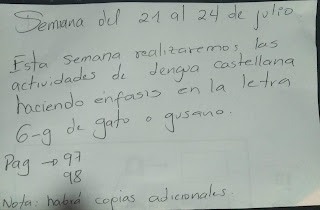 Semana del 21 al 24 de julio
Esta semana realizaremos las
actividades de lengua castellana
haciendo énfasis en la letra
G-g de gato o gusano.
Pag → 97
98
Nota: habrá copias adicionales.